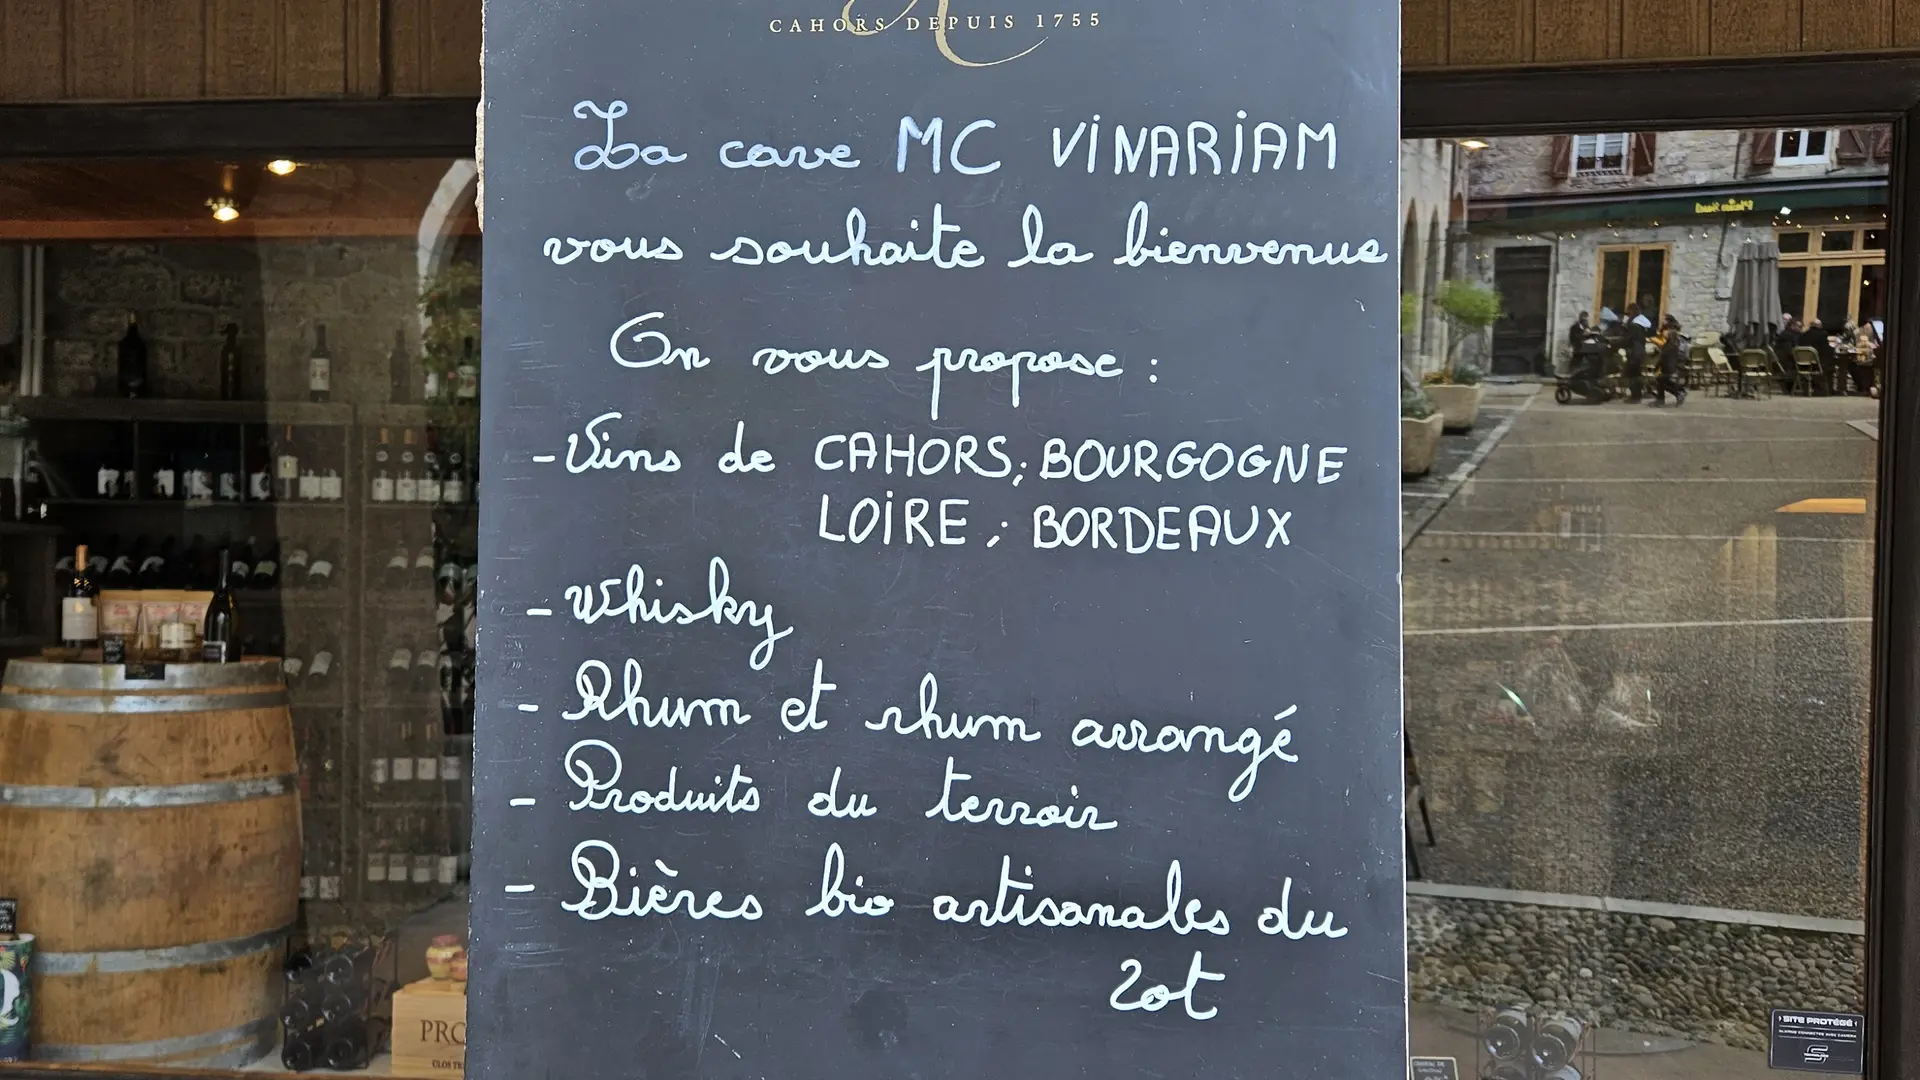 CAHORS DEPUIS 1755
La cave MC VINARIAM
vous souhaite la bienvenue
On vous propose :
- Vins de CAHORS ; BOURGOGNE
LOIRE ; BORDEAUX
- Whisky
- Rhum et rhum arrangé
- Produits du terroir
- Bières bio artisanales du
lot
PRO
SITE PROTÉGÉ